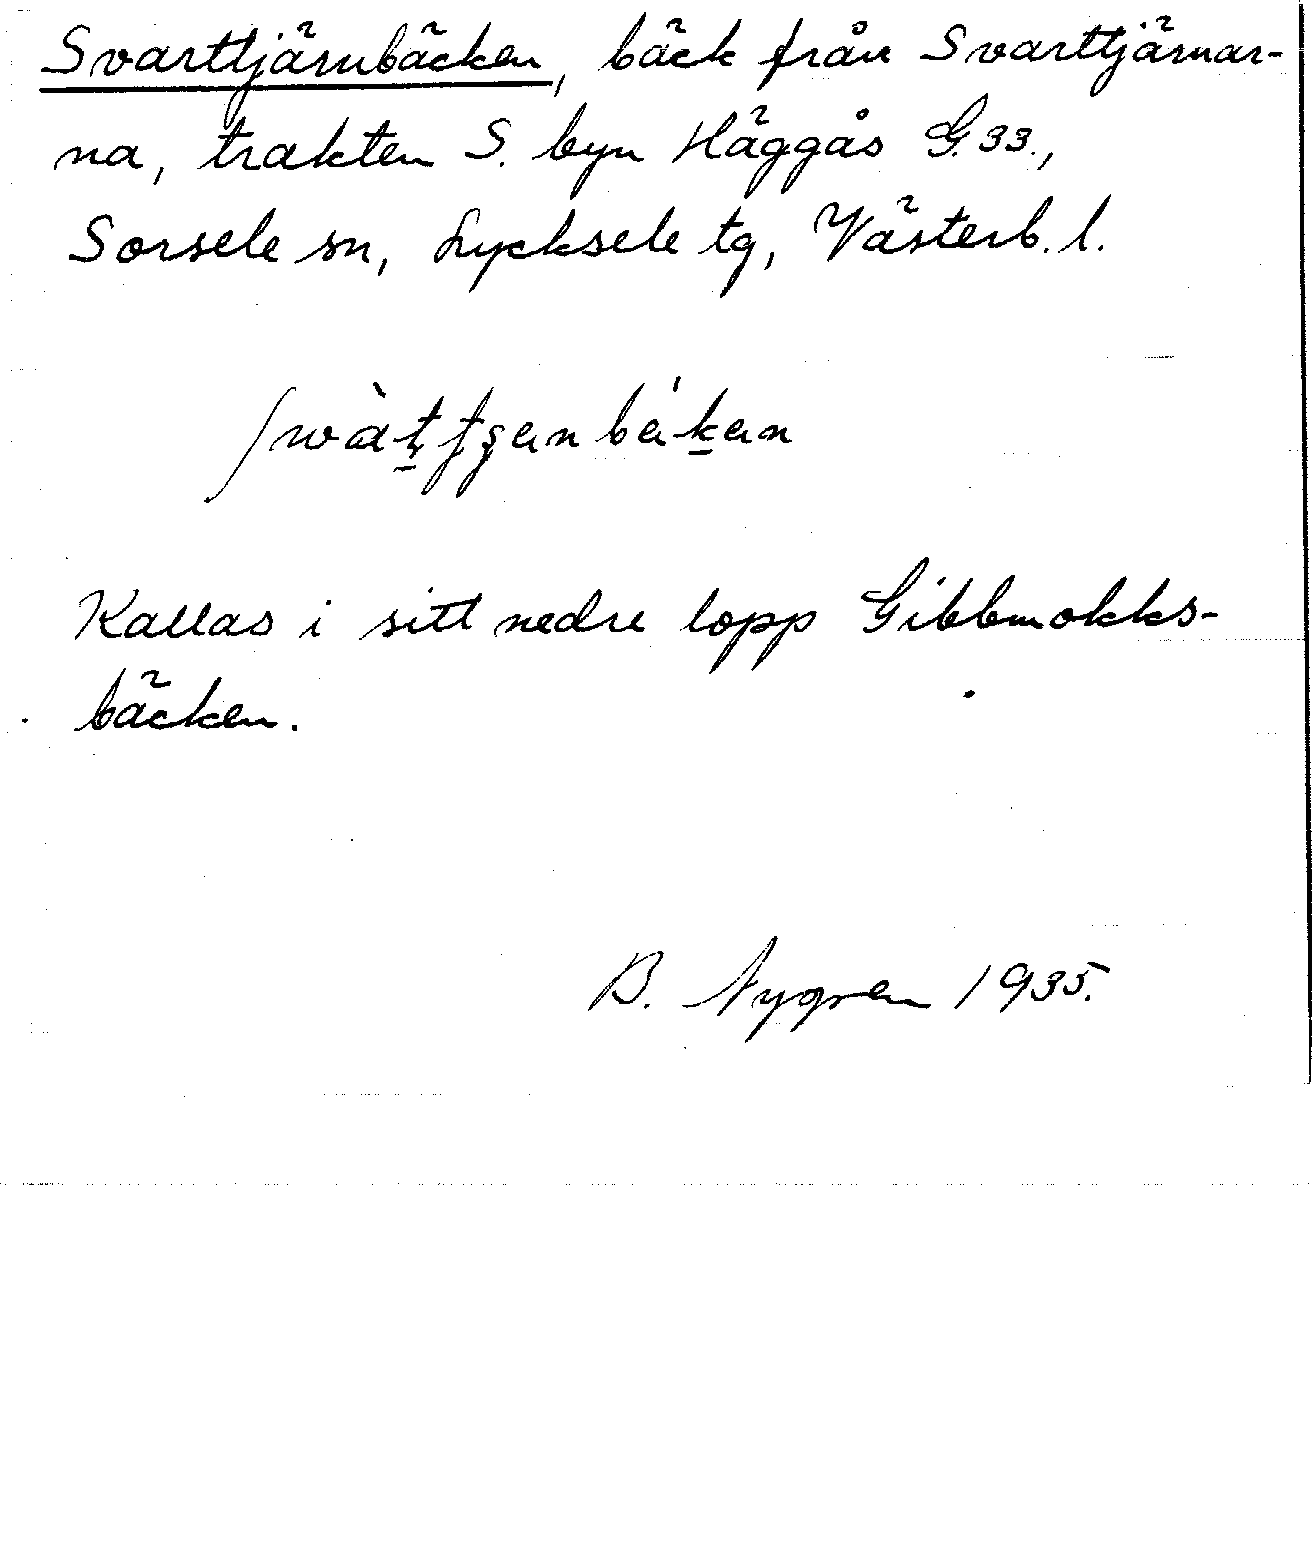 Svarttjärnbäcken, bäck från Svarttjärnar-
na, trakten S. byn Häggås G. 33.,
Sorsele sn, Lycksele tg, Västerb. l.
Kallas i sitt nedre lopp Gibbmokks-
bäcken.
B. Nygren 1935.